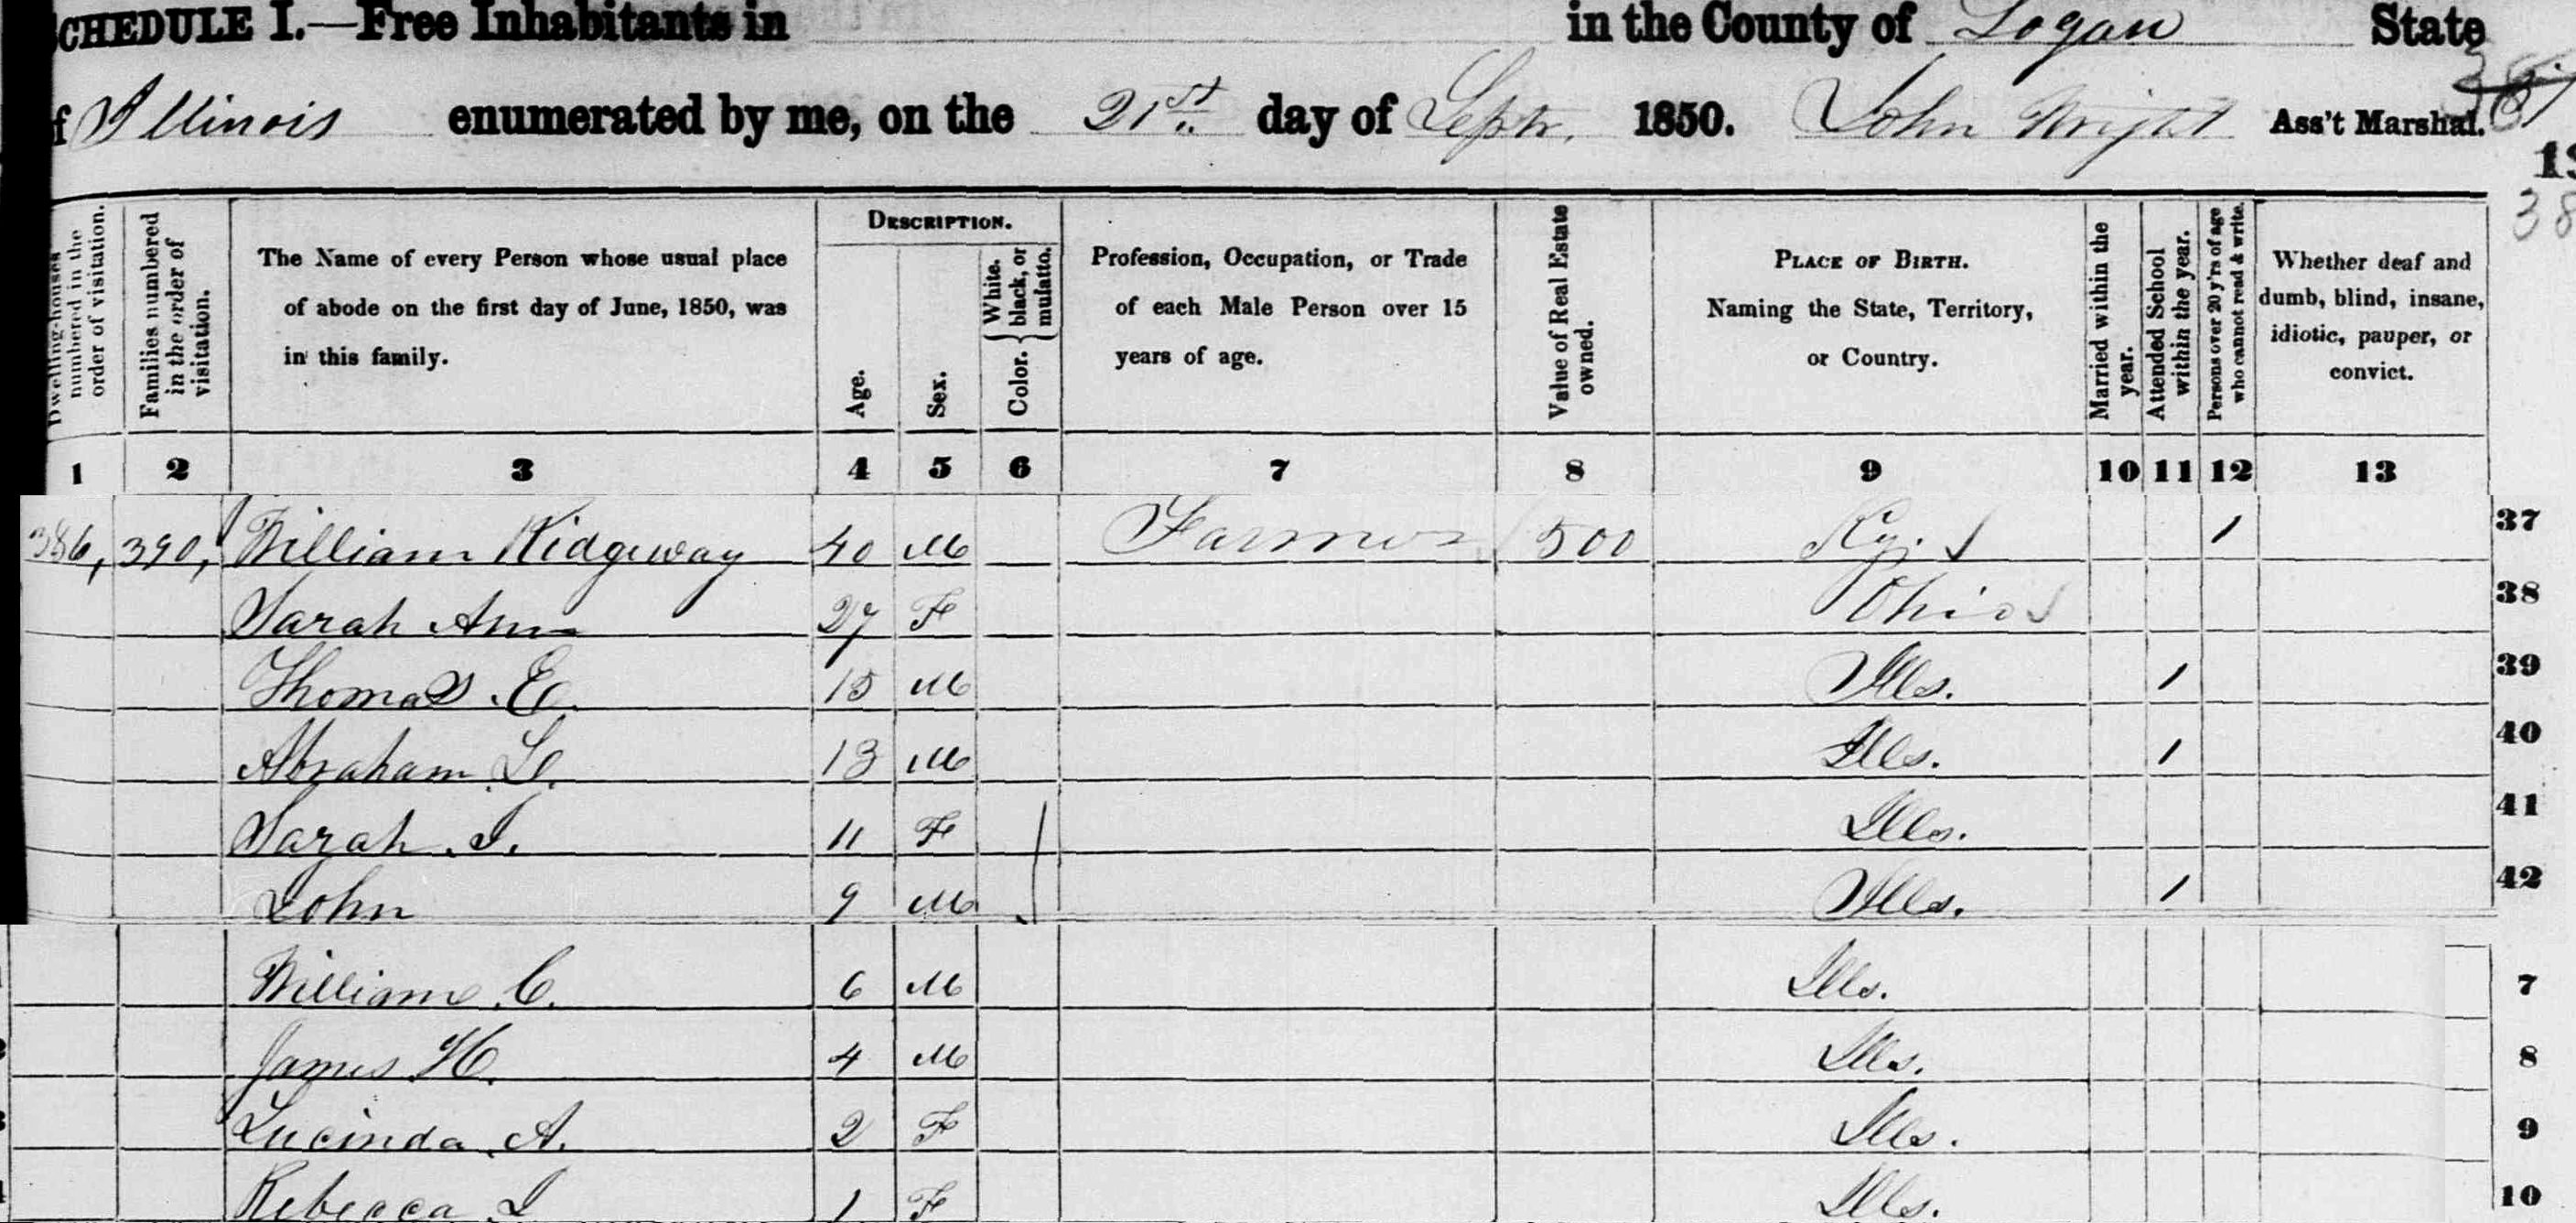 SCHEDULE I.—Free Inhabitants in in the County of Logan State
of Illinois enumerated by me, on the 21st day of Septr. 1850. John Wright Ass't Marshal.
Dwelling-houses numbered in the order of visitation.
Families numbered in the order of visitation.
The Name of every Person whose usual place of abode on the first day of June, 1850, was in this family.
DESCRIPTION.
Age.
Sex.
Color. { White, black, or mulatto.
Profession, Occupation, or Trade of each Male Person over 15 years of age.
Value of Real Estate owned.
PLACE OF BIRTH. Naming the State, Territory, or Country.
Married within the year.
Attended School within the year.
Persons over 20 y'rs of age who cannot read & write.
Whether deaf and dumb, blind, insane, idiotic, pauper, or convict.
1 2 3 4 5 6 7 8 9 10 11 12 13
386, 390, William Ridgeway 40 M Farmer 500 Ky. 1 37
Sarah Ann 27 F Ohio 38
Thomas E. 15 M Ills. 1 39
Abraham L. 13 M Ills. 1 40
Sarah J. 11 F Ills. 41
John 9 M Ills. 1 42
William C. 6 M Ills. 7
James H. 4 M Ills. 8
Lucinda A. 2 F Ills. 9
Rebecca J 1 F Ills. 10